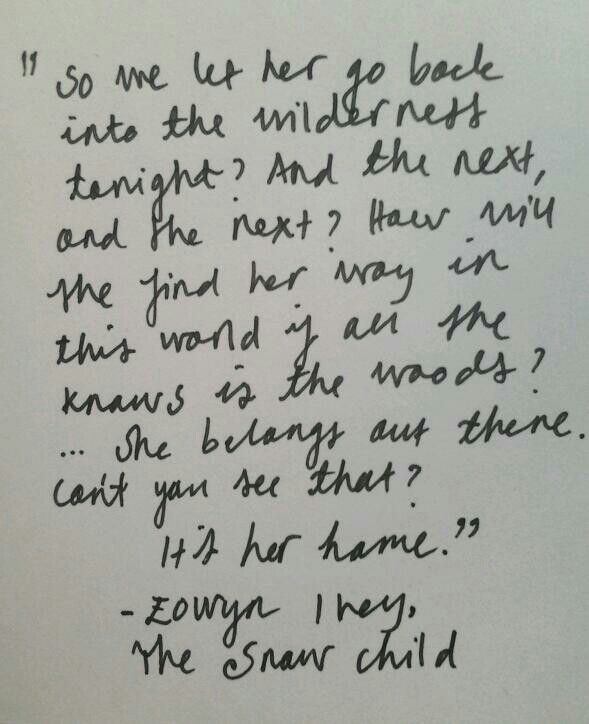 "So we let her go back
into the wilderness
tonight? And the next,
and the next? How will
she find her way in
this world if all she
knows is the woods?
... She belongs out there.
Can't you see that?
It's her home."
- Eowyn Ivey,
The Snow Child